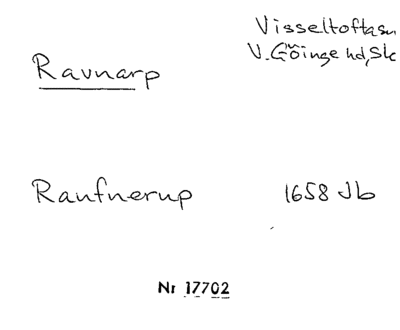 Visseltofta sn
V. Göinge hd, Sk
Ravnarp
Raufnerup 1658 Jb
Nr 17702